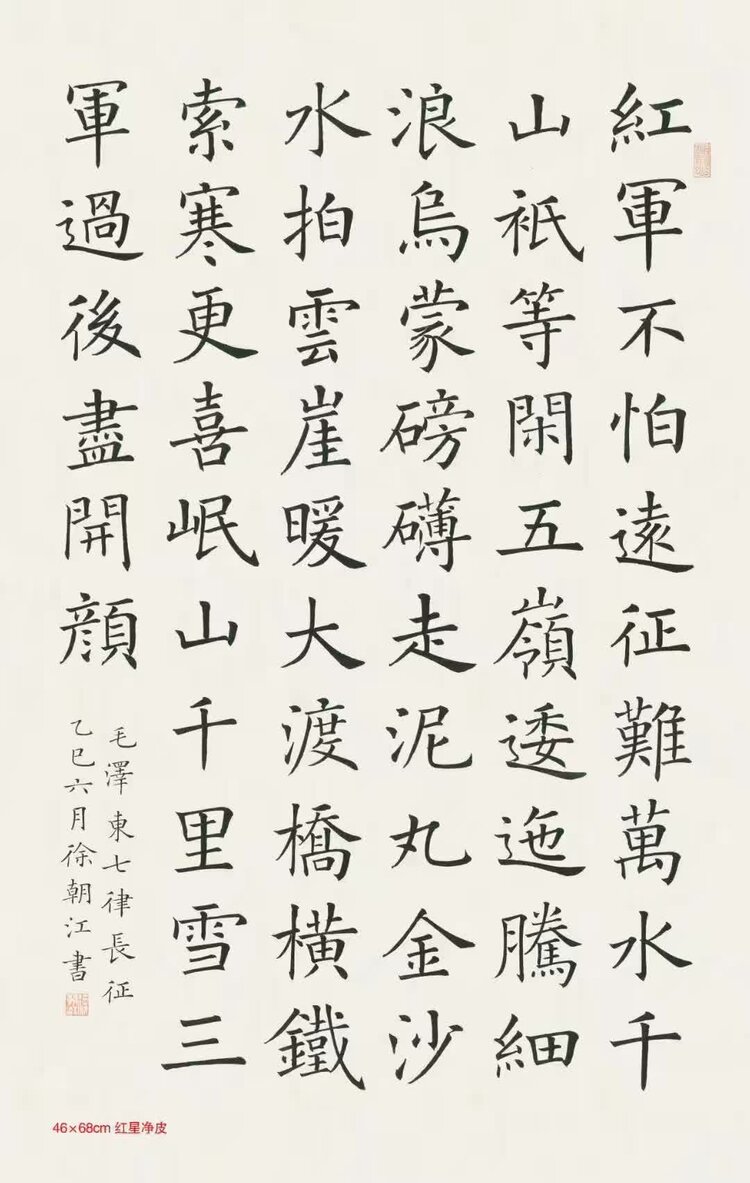 紅軍不怕遠征難萬水千
山祇等閑五嶺逶迤騰細
浪烏蒙磅礴走泥丸金沙
水拍雲崖暖大渡橋橫鐵
索寒更喜岷山千里雪三
軍過後盡開顔
毛澤東七律長征
乙巳六月徐朝江書
46×68cm 红星净皮